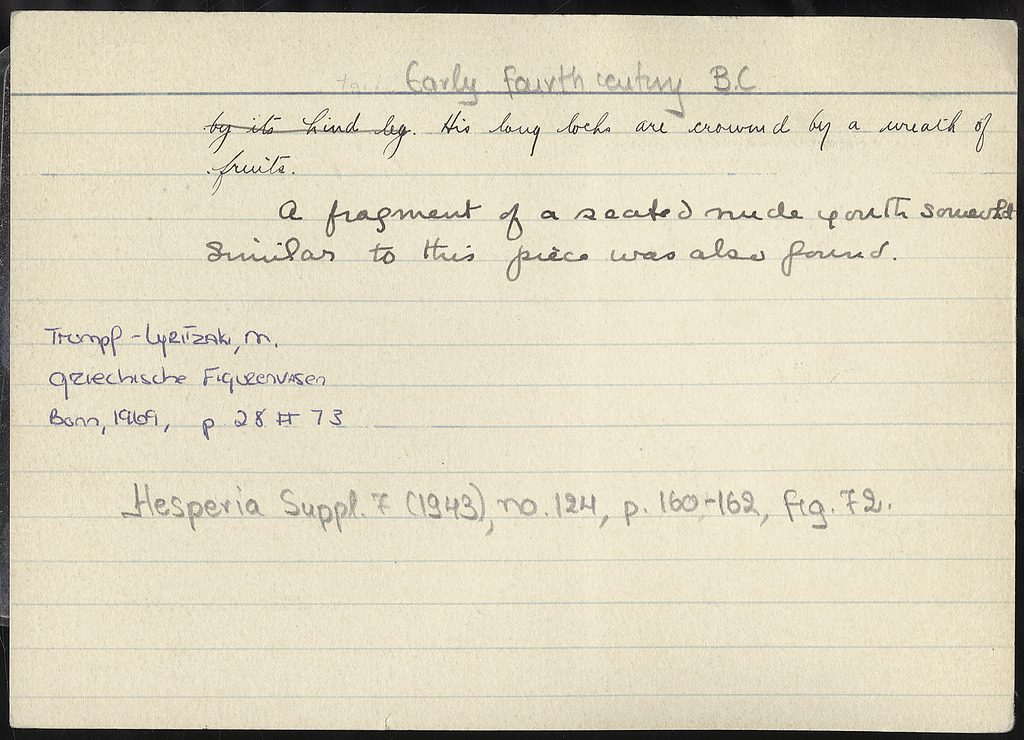 Early fourth century B.C
by its hind leg. His long locks are crowned by a wreath of
fruits.
A fragment of a seated nude youth somewhat
similar to this piece was also found.
Trumpf-Lyritzaki, M.
Griechische Figurenvasen
Bonn, 1969, p 28 # 73
Hesperia Suppl. 7 (1943), no. 124, p. 160-162, fig. 72.